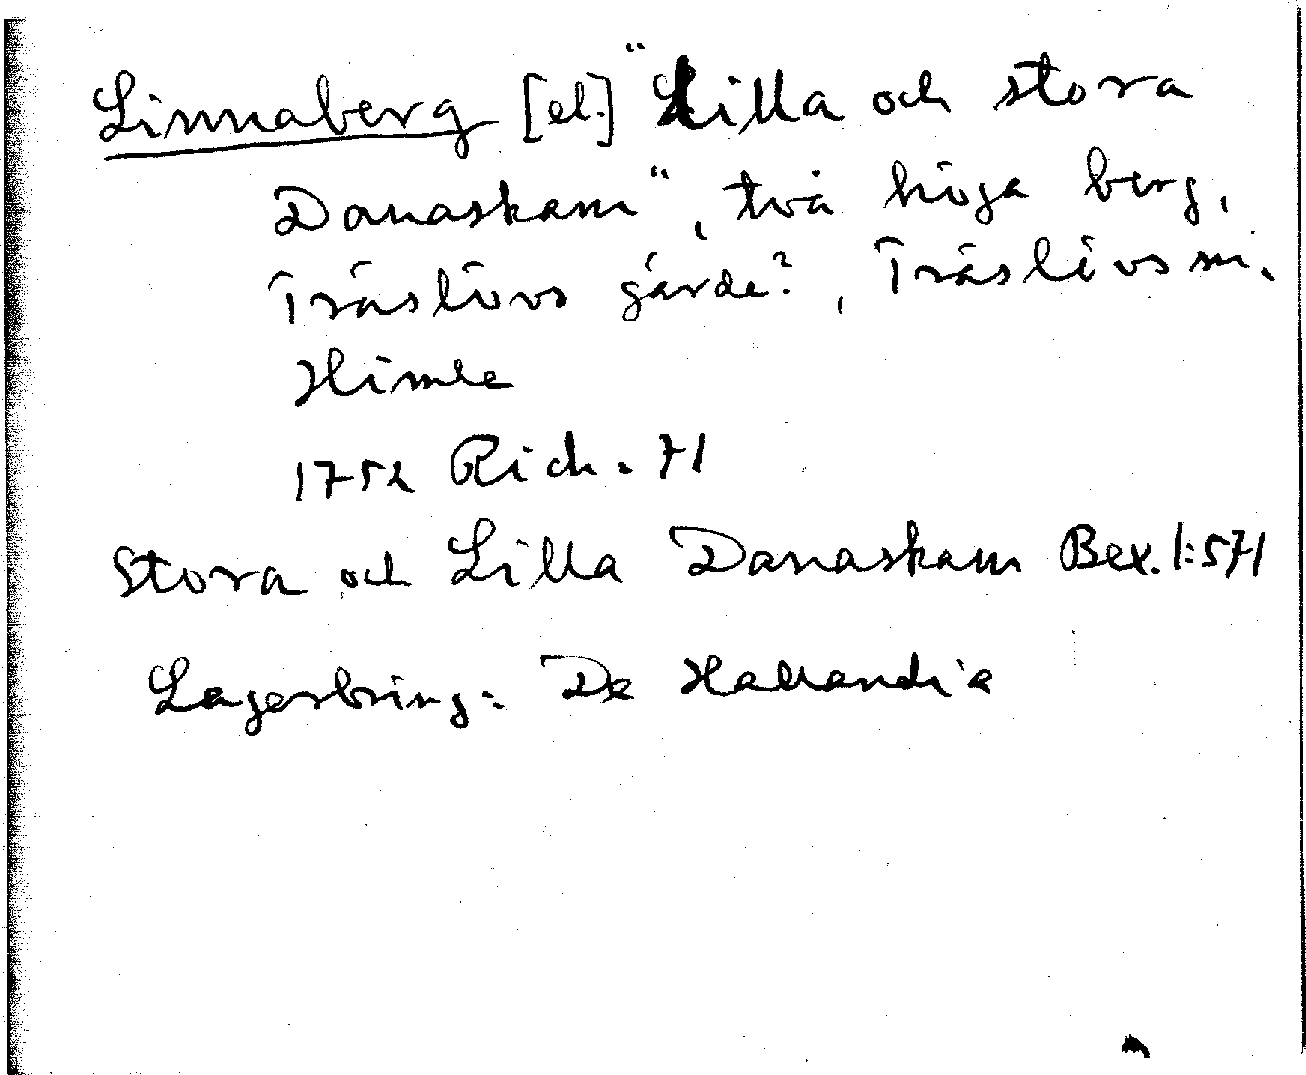 Linnaberg [el.] "Lilla och stora
Danaskam", två höga berg,
Träslövs gärde?, Träslövs sn.
Himle
1752 Rich. 71
Stora och Lilla Danaskam Bex. 1:571
Lagerbring: De Hallandia